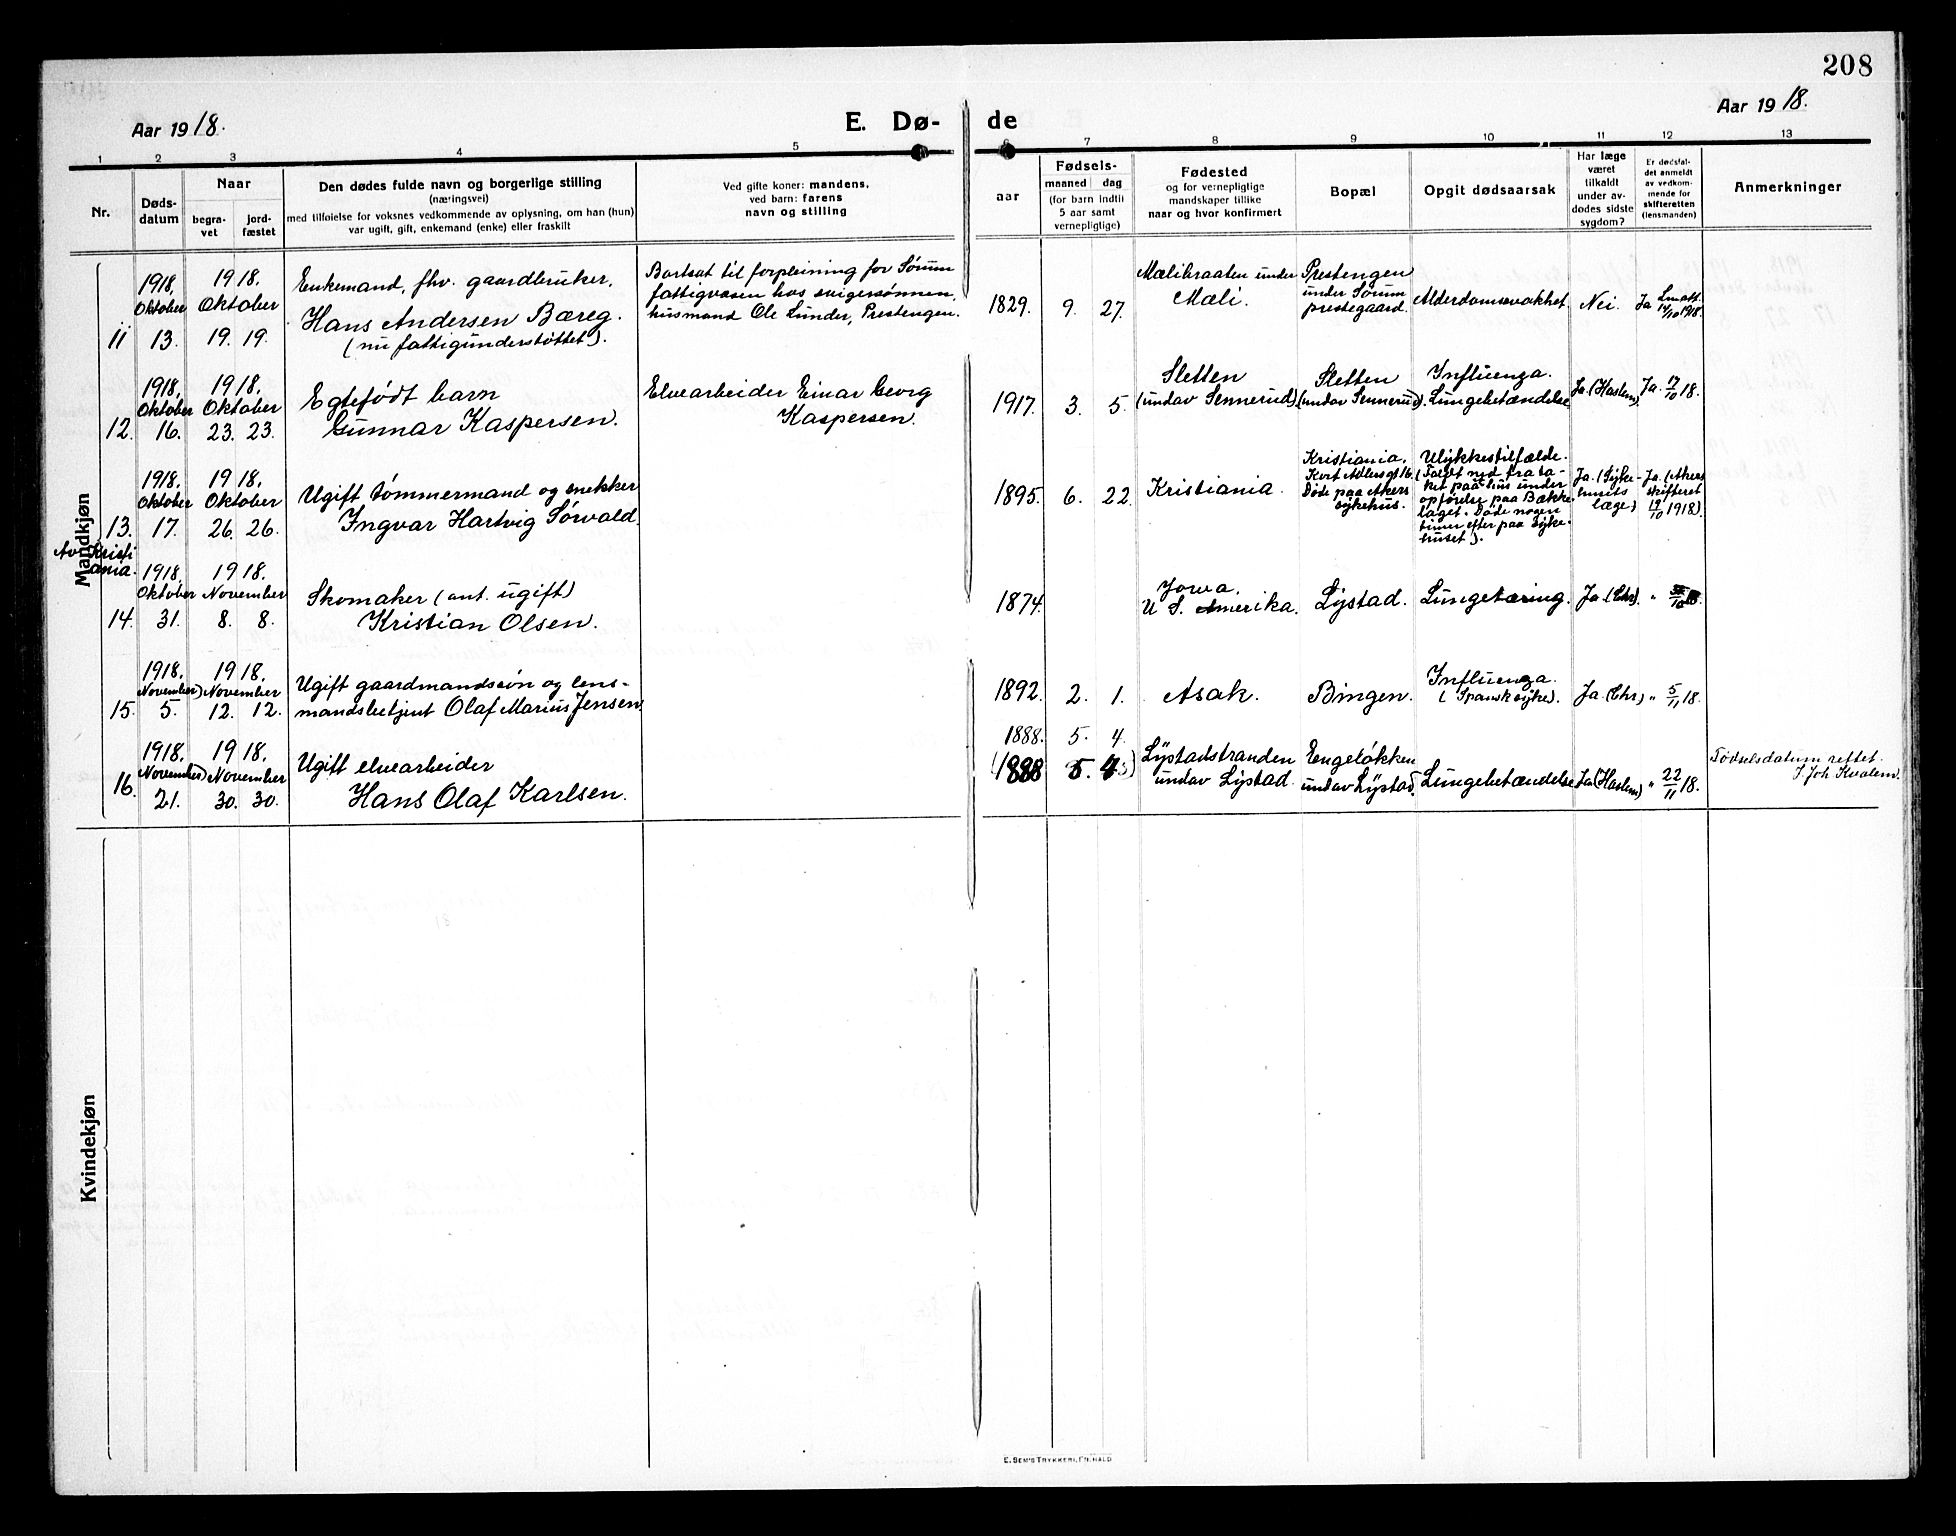 208
Aar 1918.
E. Dø-
de
Aar 1918.
1 2 3 4 5 6 7 8 9 10 11 12 13
Nr.
Døds-
datum
Naar
begra-
vet
jord-
fæstet
Den dødes fulde navn og borgerlige stilling
(næringsvei)
med tilføielse for voksnes vedkommende av oplysning, om han (hun)
var ugift, gift, enkemand (enke) eller fraskilt
Ved gifte koner: mandens,
ved barn: farens
navn og stilling
aar
Fødsels-
maaned dag
(for barn indtil
5 aar samt
vernepligtige)
Fødested
og for vernepligtige
mandskaper tillike
naar og hvor konfirmert
Bopæl
Opgit dødsaarsak
Har læge
været
tilkaldt
under av-
dødes sidste
sygdom?
Er dødsfal-
det anmeldt
av vedkom-
mende for
skifteretten
(lensmanden)
Anmerkninger
Mandkjøn
11
1918,
Oktober
13.
1918.
Oktober
19. 19.
Enkemand, fhv. gaardbruker,
Hans Andersen Bæreg.
(nu fattigunderstøttet).
Bortsat til forpleining for Sørum
fattigvæsen hos svigersønnen,
husmand Ole Lunder, Prestengen.
1829. 9. 27.
Mælibraaten under
Mæli.
Prestengen
under Sørum
prestegaard.
Alderdomssvakhet
Nei.
Ja
14/10 1918.
12.
1918.
Oktober
16.
1918.
Oktober
23. 23.
Egtefødt barn
Gunnar Kaspersen.
Elvearbeider Einar Georg
Kaspersen.
1917. 3. 5.
Sletten
(undav Sennerud)
Sletten
(undav Sennerud).
Influenza.
Lungebetændelse
Ja (Haslem)
Ja. 17/10 18.
13.
Av Kristi
ania.
1918.
Oktober
17.
1918.
Oktober
26. 26.
Ugift tømmermand og snekker
Ingvar Hartvig Sørvald.
1895. 6. 22.
Kristiania.
Kristiania.
Kort Adlersgt 16.
Døde paa Akers
sykehus.
Ulykkestilfælde.
(Faldt ned fra ta-
ket paa hus under
opførelse paa Bække-
laget. Døde nogen
timer efter paa syke-
huset).
Ja. (Syke-
husets
læge)
Ja. (Akers
skifteret
19/10 1918).
14.
1918.
Oktober
31.
1918.
November
8. 8.
Skomaker (ant. ugift)
Kristian Olsen.
1874.
Jowa.
U. S. Amerika.
Lystad.
Lungetæring.
Ja (Chr).
"
15.
1918.
November
5.
1918.
November
12. 12.
Ugift gaardmandssøn og lens-
mandsbetjent Olaf Marius Jensen.
1892. 2. 1.
Asak.
Bingen.
Influenza.
(Spansk syke).
Ja (Chr)
" 5/11 18.
16.
1918.
November
21.
1918.
November
30. 30.
Ugift elvearbeider
Hans Olaf Karlsen.
1888. 5. 4.
(1888 5.
Lystadstranden
undav Lystad.
Engeløkken
undav Lystad.
Lungebetændelse
Ja (Haslem)
" 22/11 18.
Fødselsdatum rettet.
J. Joh Kvalem.
Kvindekjøn
E. SEM'S TRYKKERI, FR.HALD